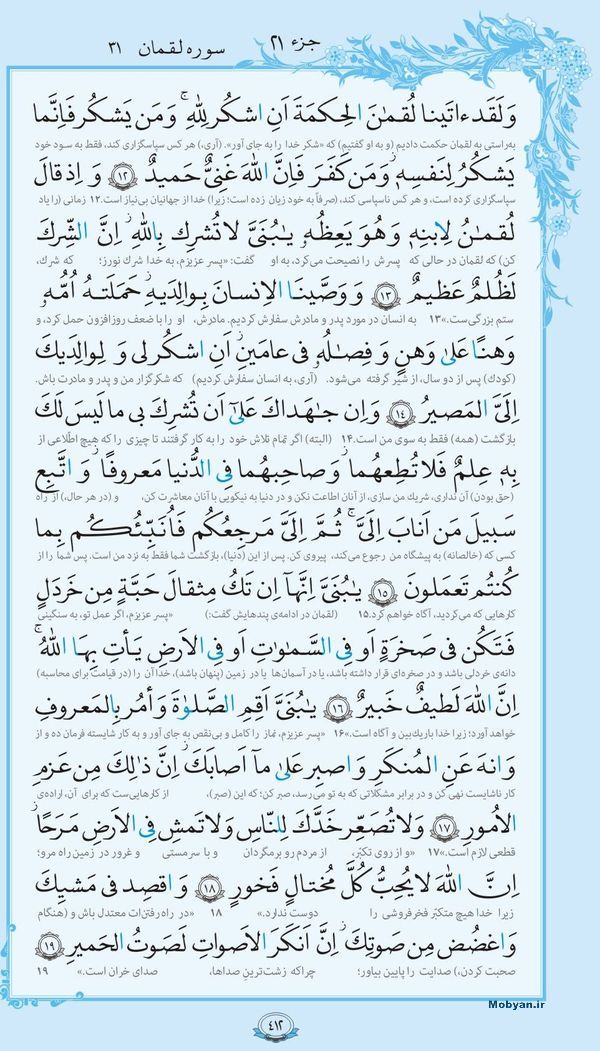 سوره لقمان ۳۱
جزء ۲۱
وَلَقَد ءاتَینا لُقمٰنَ الحِکمَةَ اَنِ اشکُر لِلّٰهِ ۚ وَمَن یَشکُر فَاِنَّما
به‌راستی به لقمان حکمت دادیم (و به او گفتیم) که «شکر خدا را به جای آور». (آری،) هر کس سپاسگزاری کند، فقط به سود خود
یَشکُرُ لِنَفسِهٖ ۖ وَمَن کَفَرَ فَاِنَّ اللّٰهَ غَنِیٌّ حَمیدٌ ﴿۱۲﴾ وَ اِذ قالَ
سپاسگزاری کرده است، و هر کس ناسپاسی کند، (صرفاً به خود زیان زده است؛ زیرا) خدا از جهانیان بی‌نیاز است.۱۲ زمانی (را یاد
لُقمٰنُ لِابنِهٖ وَ هُوَ یَعِظُهٗ یٰبُنَیَّ لا تُشرِک بِاللّٰهِ ۖ اِنَّ الشِّرکَ
کن) که لقمان در حالی که پسرش را نصیحت می‌کرد، به او گفت: «پسر عزیزم، به خدا شرك نورز؛ که شرك،
لَظُلمٌ عَظیمٌ ﴿۱۳﴾ وَ وَصَّینَا الاِنسانَ بِوالِدَیهِ حَمَلَتهُ اُمُّهٗ
ستم بزرگی‌ست.»۱۳ به انسان در مورد پدر و مادرش سفارش کردیم. مادرش، او را با ضعف روزافزون حمل کرد، و
وَهنًا عَلیٰ وَهنٍ وَ فِصالُهٗ فی عامَینِ اَنِ اشکُر لی وَ لِوالِدَیكَ
(کودك) پس از دو سال، از شیر گرفته می‌شود. (آری، به انسان سفارش کردیم) که شکرگزار من و پدر و مادرت باش.
اِلَیَّ المَصیرُ ﴿۱۴﴾ وَ اِن جٰهَداكَ عَلیٰٓ اَن تُشرِكَ بی ما لَیسَ لَكَ
بازگشت (همه) فقط به سوی من است.۱۴ (البته) اگر تمام تلاش خود را به کار گرفتند تا چیزی را که هیچ اطّلاعی از
بِهٖ عِلمٌ فَلا تُطِعهُما ۖ وَ صاحِبهُما فِی الدُّنیا مَعروفًا ۖ وَ اتَّبِع
(حق بودن) آن نداری، شریك من سازی، از آنان اطاعت نکن و در دنیا به نیکویی با آنان معاشرت کن، و (در هر حال،) از راه
سَبیلَ مَن اَنابَ اِلَیَّ ۚ ثُمَّ اِلَیَّ مَرجِعُکُم فَاُنَبِّئُکُم بِما
کسی که (خالصانه) به پیشگاه من رجوع می‌کند، پیروی کن. پس از این (دنیا)، بازگشت شما فقط به نزد من است. پس شما را از
کُنتُم تَعمَلونَ ﴿۱۵﴾ یٰبُنَیَّ اِنَّهآ اِن تَكُ مِثقالَ حَبَّةٍ مِن خَردَلٍ
کارهایی که می‌کردید، آگاه خواهم کرد.۱۵ (لقمان در ادامه‌ی پندهایش گفت:) «پسر عزیزم، اگر عمل تو، به سنگینی
فَتَکُن فی صَخرَةٍ اَو فِی السَّمٰوٰتِ اَو فِی الاَرضِ یَأتِ بِهَا اللّٰهُ ۚ
دانه‌ی خردلی باشد، و در صخره‌ای قرار داشته باشد، یا در آسمان‌ها یا در زمین (پنهان باشد)، خدا آن را (در قیامت برای محاسبه)
اِنَّ اللّٰهَ لَطیفٌ خَبیرٌ ﴿۱۶﴾ یٰبُنَیَّ اَقِمِ الصَّلوٰةَ وَ أمُر بِالمَعروفِ
خواهد آورد؛ زیرا خدا باریك‌بین و آگاه است.»۱۶ «پسر عزیزم، نماز را کامل و بی‌نقص به جای آور و به کار شایسته فرمان ده و از
وَ انهَ عَنِ المُنکَرِ وَ اصبِر عَلیٰ مآ اَصابَكَ ۖ اِنَّ ذٰلِكَ مِن عَزمِ
کار ناشایست نهی کن و در برابر مشکلاتی که به تو می‌رسد، صبر کن؛ که این (صبر)، از کارهایی‌ست که برای آن، اراده‌ی
الاُمورِ ﴿۱۷﴾ وَ لا تُصَعِّر خَدَّكَ لِلنّاسِ وَ لا تَمشِ فِی الاَرضِ مَرَحًا ۖ
قطعی لازم است.»۱۷ «و از روی تکبّر، از مردم رو برمگردان و با سرمستی و غرور در زمین راه مرو؛
اِنَّ اللّٰهَ لا یُحِبُّ کُلَّ مُختالٍ فَخورٍ ﴿۱۸﴾ وَ اقصِد فی مَشیِكَ
زیرا خدا هیچ متکبّر فخرفروشی را دوست ندارد.» ۱۸ «در راه رفتن‌ات معتدل باش و (هنگام
وَ اغضُض مِن صَوتِكَ ۚ اِنَّ اَنکَرَ الاَصواتِ لَصَوتُ الحَمیرِ ﴿۱۹﴾
صحبت کردن،) صدایت را پایین بیاور؛ چراکه زشت‌ترینِ صداها، صدای خران است.» ۱۹
Mobyan.ir
۴۱۲